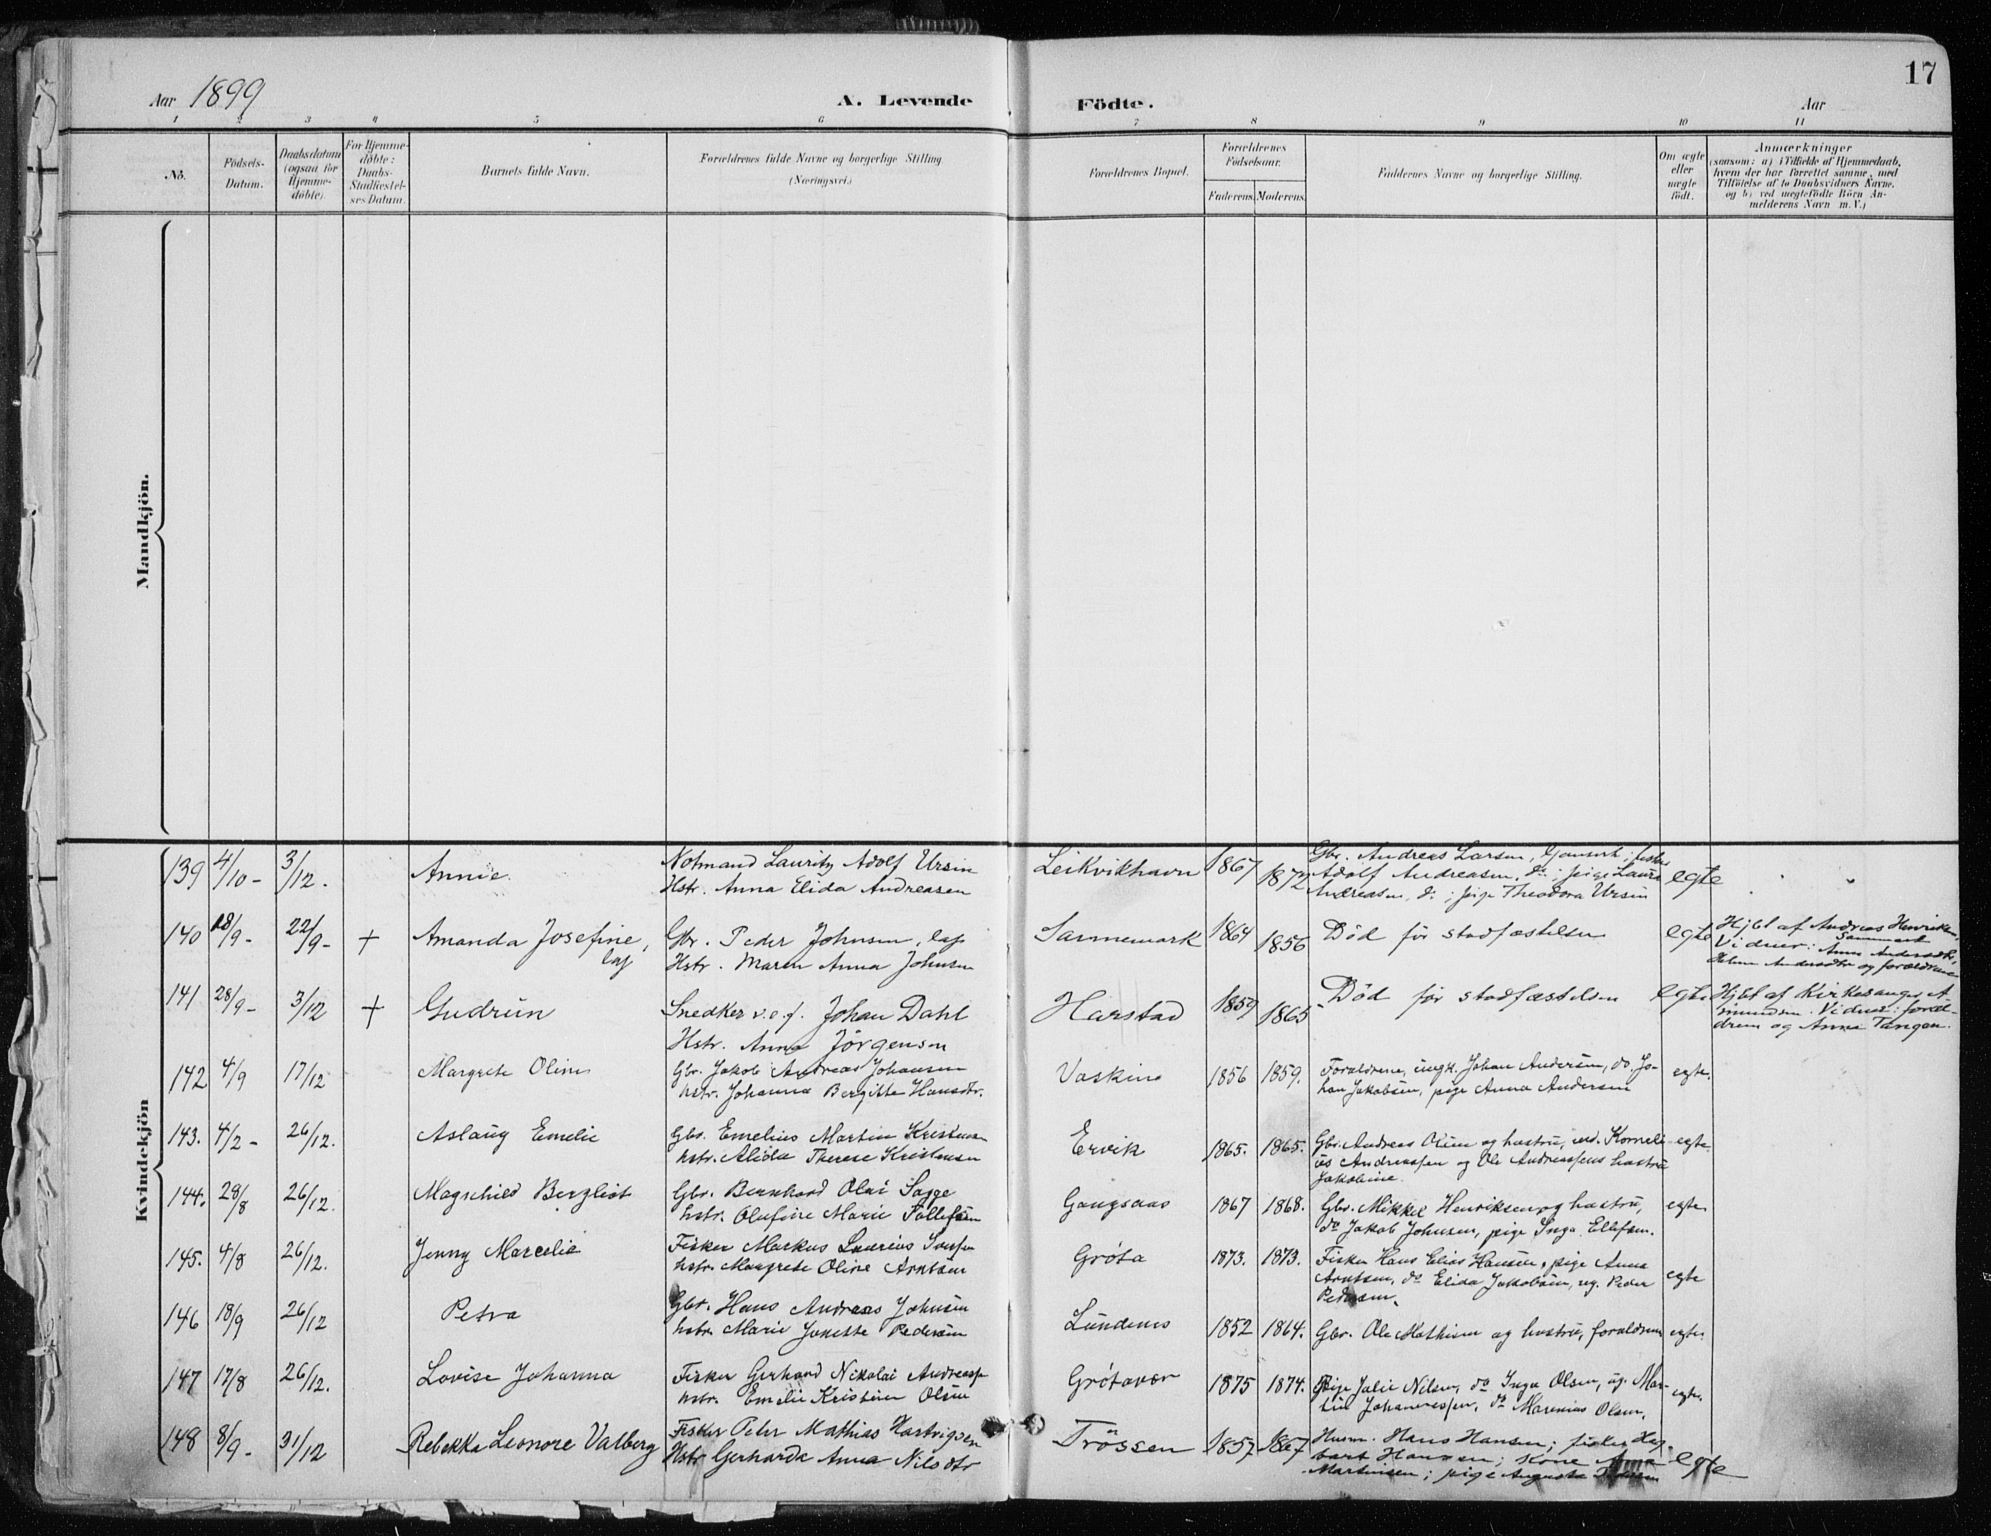 17
Aar 1899
A. Levende
Födte.
Aar
1 2 3 4 5 6 7 8 9 10 11
No.
Födsels-
Datum.
Daabsdatum
(ogsaa for
Hjemme-
döbte).
For Hjemme-
döbte:
Daabs-
Stadfæstel-
ses Datum.
Barnets fulde Navn.
Forældrenes fulde Navne og borgerlige Stilling.
(Næringsvei.)
Forældrenes Bopæl.
Forældrenes
Födselsaar.
Faderens. Moderens.
Faddernes Navne og borgerlige Stilling.
Om ægte
eller
uægte
födt.
Anmærkninger
(saasom: a) i Tilfælde af Hjemmedaab,
hvem der har forrettet samme, med
Tilföielse af to Daabsvidners Navne,
og b) ved uægtefödte Börn An-
melderens Navn m. V.)
Mandkjön.
Kvindekjön
139 4/10 - 3/12. Annie. Notmand Lauritz Adolf Ursin
Hstr. Anna Elida Andreasen
Leikvikhavn 1867 1872
Gbr. Andreas Larsen, fisker
Adolf Andreasen, do; pige Laura
Andreasen, do; pige Theodora Ursin
egte
140 18/9 - 22/9 - + Amanda Josefine, lap
Gbr. Peder Johnsen, lap
Hstr. Maren Anna Johnsen
Sannemark 1864 1856
Död för stadfæstelsen
egte
Hjbt af Andreas Henriksen,
Sanmark
Vidner: Anna Andersdtr,
Andersdtr og forældrene
141 28/9 - 3/12 + Gudrun
Snedker s.e.f. Johan Dahl
Hstr. Anna Jörgensen
Harstad 1859 1865
Död för stadfæstelsen
egte
Hjbt af Kirkesanger A
mundsen. Vidner: foræl-
drene og Anna Tangen.
142 4/9 17/12 Margrete Oline
Gbr. Jakob Andreas Johansen
hstr. Johanna Bergitte Hansdtr.
Vaskinn 1856 1859.
Forældrene, ungk. Johan Andersen, do. Jo-
han Jakobsen, pige Anna Andersen
egte.
143. 4/2 - 26/12. Aslaug Emelie
Gbr. Emelius Martin Kristensen
hstr. Alida Therese Kristensen
Ervik 1865. 1865.
Gbr. Andreas Olsen og hustru, Korneli-
us Andreassen og Ole Andreassens hustru
Jakobine.
egte.
144. 28/8 26/12. Magnhild Bergliot
Gbr. Bernhard Olai Sagge
hstr. Olufine Marie Tollefsen
Gangsaas 1867 1868.
Gbr. Mikkel Henriksen og hustru,
do Jakob Johnsen, pige Inga Ellefsen.
egte
145. 4/8 26/12. Jenny Marcelie
Fisker Markus Laurius
hstr. Margrete Oline Arntsen
Gröta 1873. 1873.
Fisker Hans Elias Hansen, pige Anna
Arntsen, do Elida Jakobsen, ug. Peder
Pedersen.
egte
146 18/9 26/12 Petra
Gbr. Hans Andreas Johnsen
hstr. Marie Jonette Pedersen
Lundenes 1852 1864.
Gbr. Ole Mathisen og hustru, forældrene
egte
147 17/8 26/12. Lovise Johanna
Fisker Gerhard Nikolai Andreass.
hstr. Emelie Kristine Olsen
Grötavær 1875 1874.
Pige Julie Nilsen, do Inga Olsen, ug. Mar-
tin Johannessen, do Marenius Olsen.
egte.
148 8/9 - 31/12 Rebekka Leonore Valberg
Fisker Peter Mathias Hartvigsen
Hstr Gerharda Anna Nilsdtr
Trössen 1857 1867
Husm. Hans Hansen; fisker Hag-
bart Hansen; kone Anna
Martinsen; pige Augusta
egte